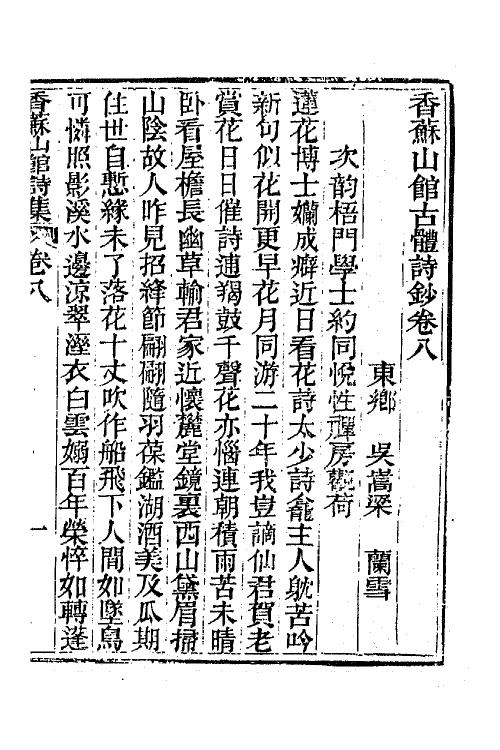 香蘇山館古體詩鈔卷八
東鄉 吳嵩梁 蘭雪
次韵梧門學士約同悅性禪房觀荷
蓮花博士嬾成癖近日看花詩太少詩龕主人躭苦吟
新句似花開更早花月同游二十年我豈謫仙君賀老
賞花日日催詩速羯鼓千聲花亦惱連朝積雨苦未晴
卧看屋檐長幽草輸君家近懷麓堂鏡裏西山黛眉掃
山陰故人昨見招絳節翩翩隨羽葆鑑湖酒美及瓜期
住世自慙緣未了落花十丈吹作船飛下人間如墜鳥
可憐照影溪水邊涼翠溼衣白雲嫋百年榮悴如轉蓬
香蘇山館詩集 卷八 一